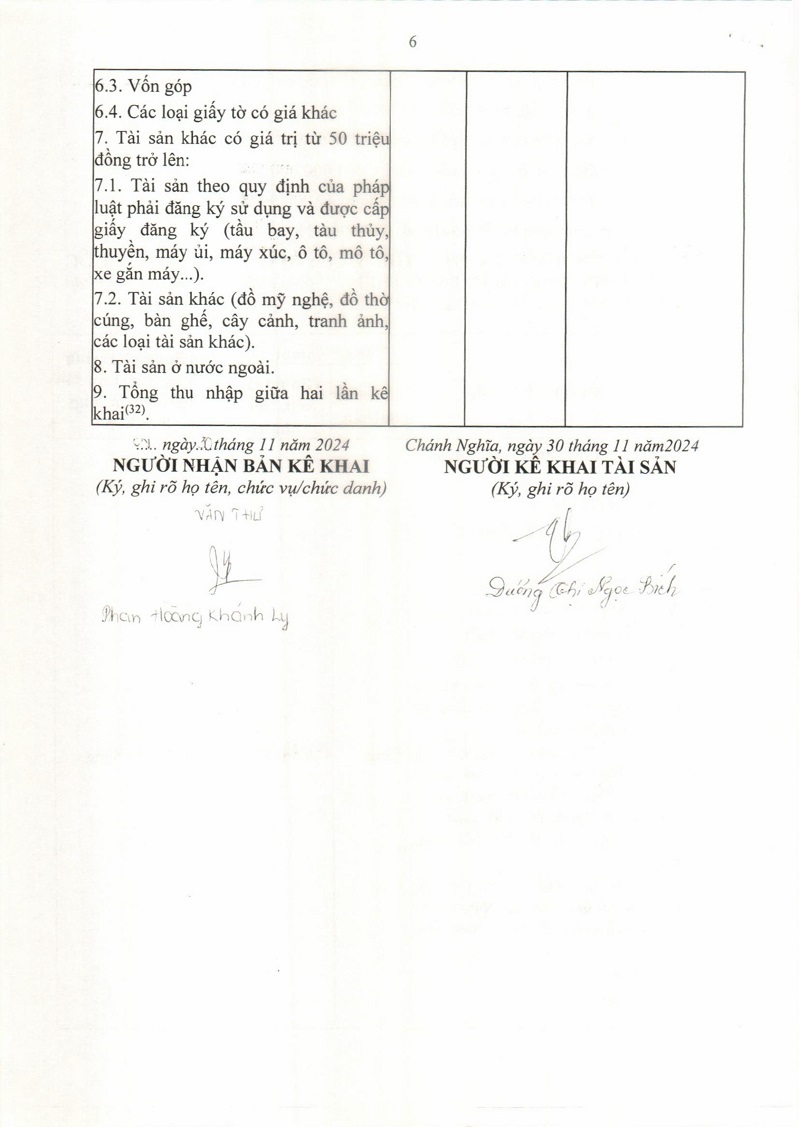 6
6.3. Vốn góp
6.4. Các loại giấy tờ có giá khác
7. Tài sản khác có giá trị từ 50 triệu
đồng trở lên:
7.1. Tài sản theo quy định của pháp
luật phải đăng ký sử dụng và được cấp
giấy đăng ký (tầu bay, tàu thủy,
thuyền, máy ủi, máy xúc, ô tô, mô tô,
xe gắn máy...).
7.2. Tài sản khác (đồ mỹ nghệ, đồ thờ
cúng, bàn ghế, cây cảnh, tranh ảnh,
các loại tài sản khác).
8. Tài sản ở nước ngoài.
9. Tổng thu nhập giữa hai lần kê
khai(32).
ngày 30 tháng 11 năm 2024
Chánh Nghĩa, ngày 30 tháng 11 năm2024
NGƯỜI NHẬN BẢN KÊ KHAI
NGƯỜI KÊ KHAI TÀI SẢN
(Ký, ghi rõ họ tên, chức vụ/chức danh)
(Ký, ghi rõ họ tên)
VĂN THƯ
Dương Thị Ngọc Bích
Phan Hoàng Khánh Ly